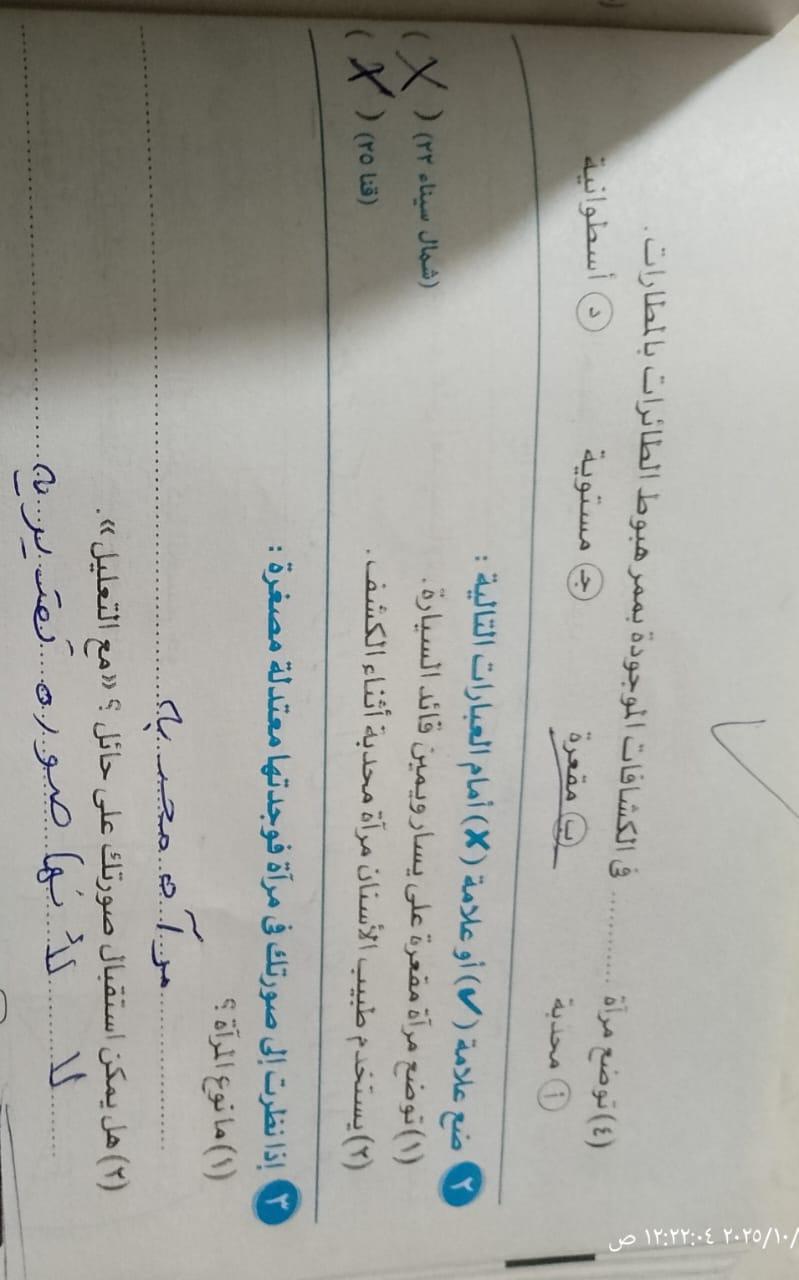 (٤) توضع مرآة ............ فى الكشافات الموجودة بممر هبوط الطائرات بالمطارات.
أ محدبة ب مقعرة ج مستوية د أسطوانية
٢ ضع علامة (✓) أو علامة (X) أمام العبارات التالية :
(١) توضع مرآة مقعرة على يسار ويمين قائد السيارة. (شمال سيناء ٢٣) ( X )
(٢) يستخدم طبيب الأسنان مرآة محدبة أثناء الكشف. (قنا ٢٥) ( X )
٣ إذا نظرت إلى صورتك فى مرآة فوجدتها معتدلة مصغرة :
(١) ما نوع المرآة ؟
مرآه محدبه
(٢) هل يمكن استقبال صورتك على حائل ؟ «مع التعليل».
لا لأنها صوره تقديريه
٢٠٢٥/١٠/ ١٢:٢٢:٠٤ ص